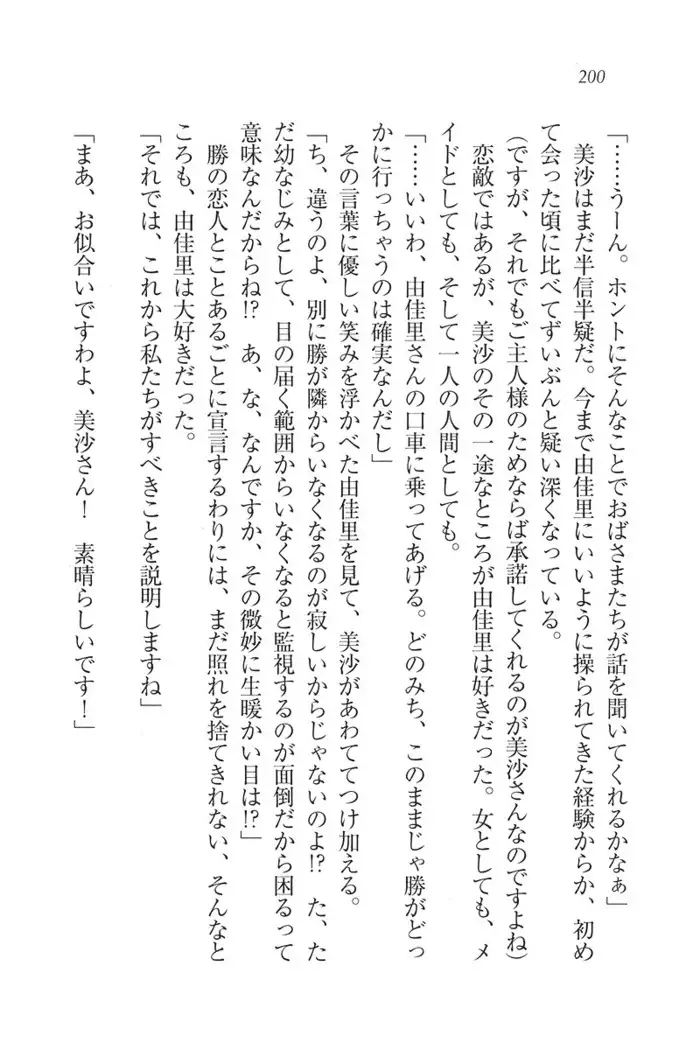 200
「……うーん。ホントにそんなことでおばさまたちが話を聞いてくれるかなぁ」
美沙はまだ半信半疑だ。今まで由佳里にいいように操られてきた経験からか、初め
て会った頃に比べてずいぶんと疑い深くなっている。
(ですが、それでもご主人様のためならば承諾してくれるのが美沙さんなのですよね)
恋敵ではあるが、美沙のその一途なところが由佳里は好きだった。女としても、メ
イドとしても、そして一人の人間としても。
「……いいわ、由佳里さんの口車に乗ってあげる。どのみち、このままじゃ勝がどっ
かに行っちゃうのは確実なんだし」
その言葉に優しい笑みを浮かべた由佳里を見て、美沙があわててつけ加える。
「ち、違うのよ、別に勝が隣からいなくなるのが寂しいからじゃないのよ!? た、た
だ幼なじみとして、目の届く範囲からいなくなると監視するのが面倒だから困るって
意味なんだからね!? あ、な、なんですか、その微妙に生暖かい目は!?」
勝の恋人とことあるごとに宣言するわりには、まだ照れを捨てきれない、そんなと
ころも、由佳里は大好きだった。
「それでは、これから私たちがすべきことを説明しますね」
「まあ、お似合いですわよ、美沙さん! 素晴らしいです!」